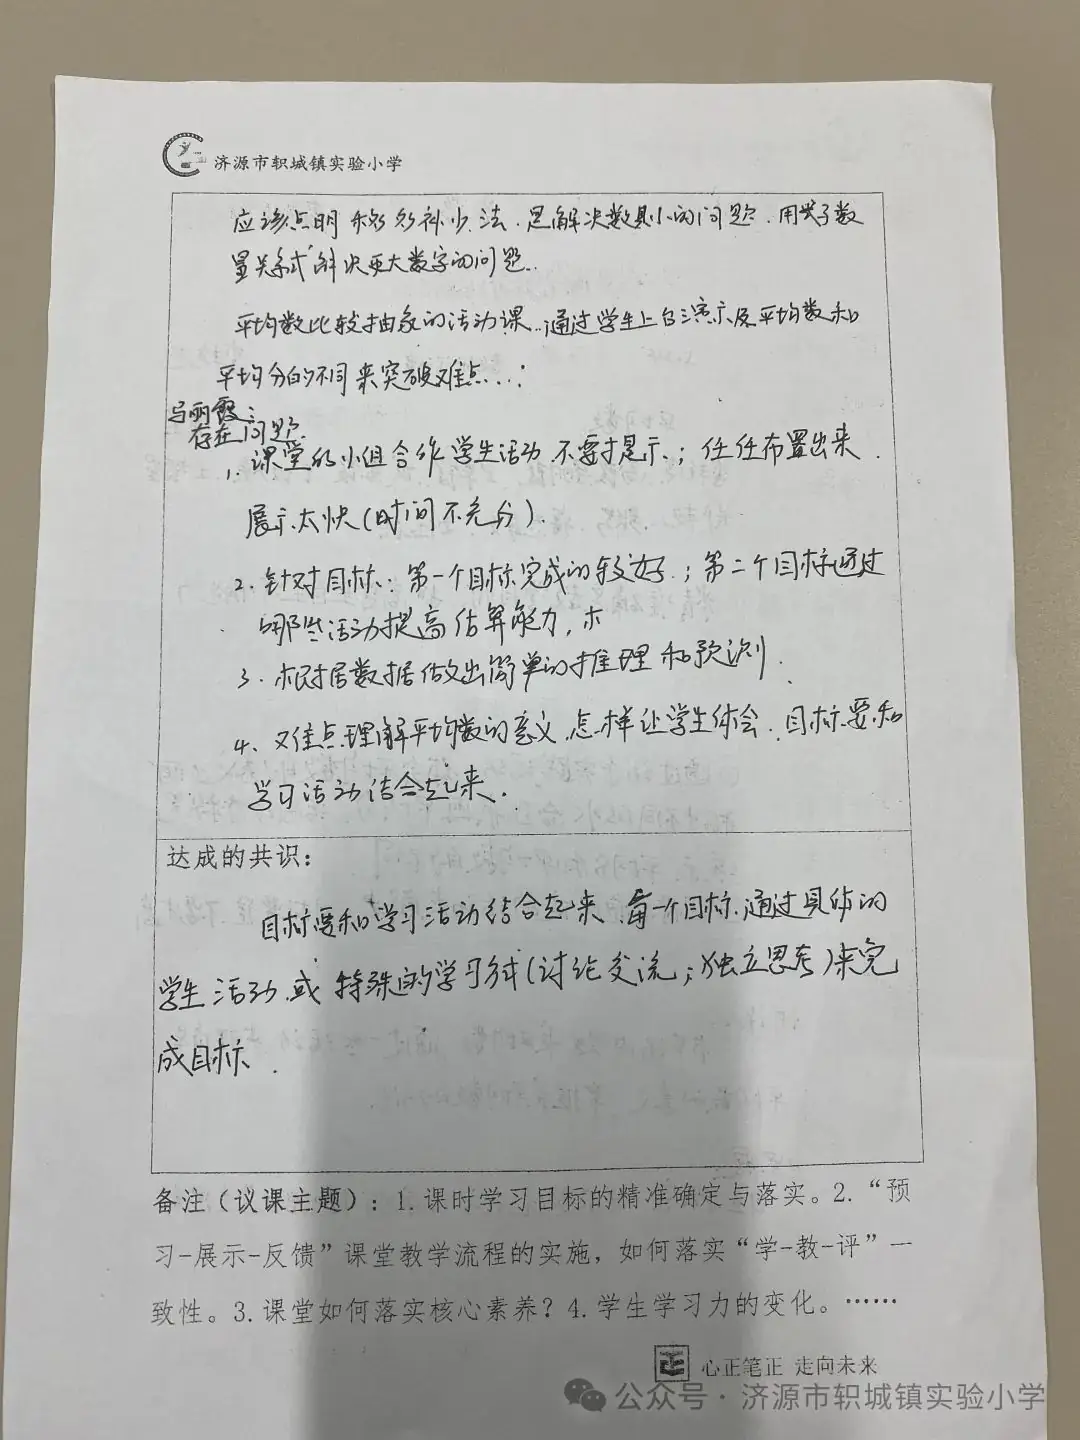 济源市轵城镇实验小学
应该点明 移多补少 法.是解决数具小的问题.用关于数
量关系式解决更大数字的问题..
平均数比较抽象的活动课..通过学生上台演示及平均数和
平均分的不同来突破难点...:
马丽霞:
存在问题.
1.课堂的小组合作学生活动不要提示;任任布置出来.
展示太快(时间不充分).
2.针对目标:第一个目标完成的较好.;第二个目标通过
哪些活动提高估算能力,
3.根据数据做出简单的推理和预测.
4、难点理解平均数的意义.怎样让学生体会.目标要和
学习活动结合起来.
达成的共识:
目标要和学习活动结合起来.每一个目标.通过具体的
学生活动.或特殊的学习方式(讨论交流;独立思考)来完
成目标.
备注(议课主题):1.课时学习目标的精准确定与落实。2.“预
习-展示-反馈”课堂教学流程的实施，如何落实“学-教-评”一
致性。3.课堂如何落实核心素养？4.学生学习力的变化。……
正 心正笔正 走向未来
公众号·济源市轵城镇实验小学